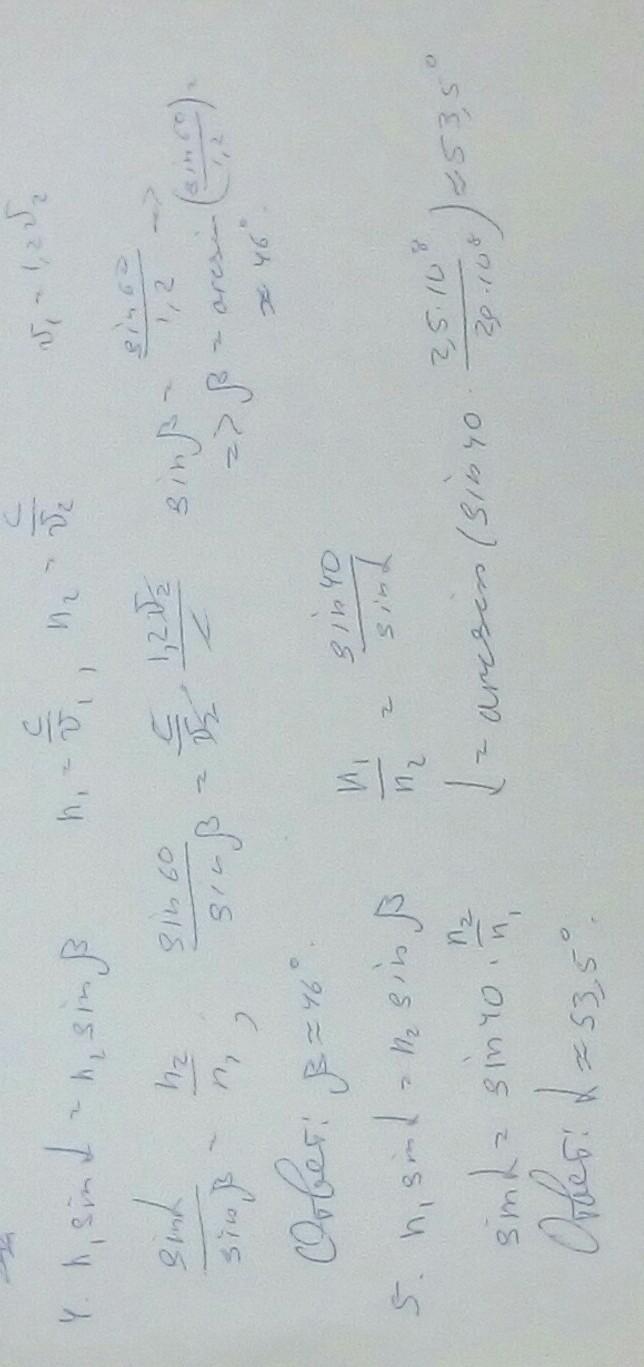 4. n₁ sin α = n₂ sin β n₁ = c/υ₁, n₂ = c/υ₂ υ₁ = 1,2υ₂
sin α/sin β = n₂/n₁, sin 60/sin β = c/υ₂ · 1,2υ₂/c sin β = sin 60/1,2 =>
=> β = arcsin (sin 60/1,2) ≈
≈ 46°.
Ответ: β ≈ 46°.
5. n₁ sin α = n₂ sin β n₁/n₂ = sin 40/sin α
sin α = sin 40 · n₂/n₁ α = arcsin (sin 40 · 2,5·10⁸/2,0·10⁸) ≈ 53,5°
Ответ: α ≈ 53,5°.